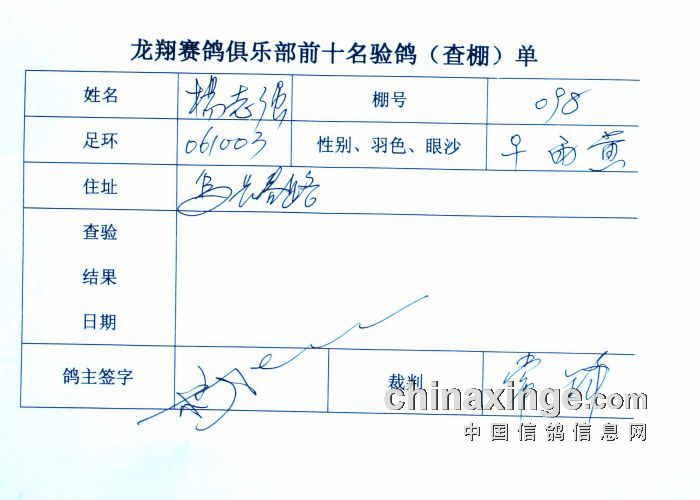 龙翔赛鸽俱乐部前十名验鸽（查棚）单
姓名 杨志强 棚号 098
足环 061003 性别、羽色、眼沙 雨黄
住址
查验
结果
日期
鸽主签字 裁判
chinaxinge.com
中国信鸽信息网